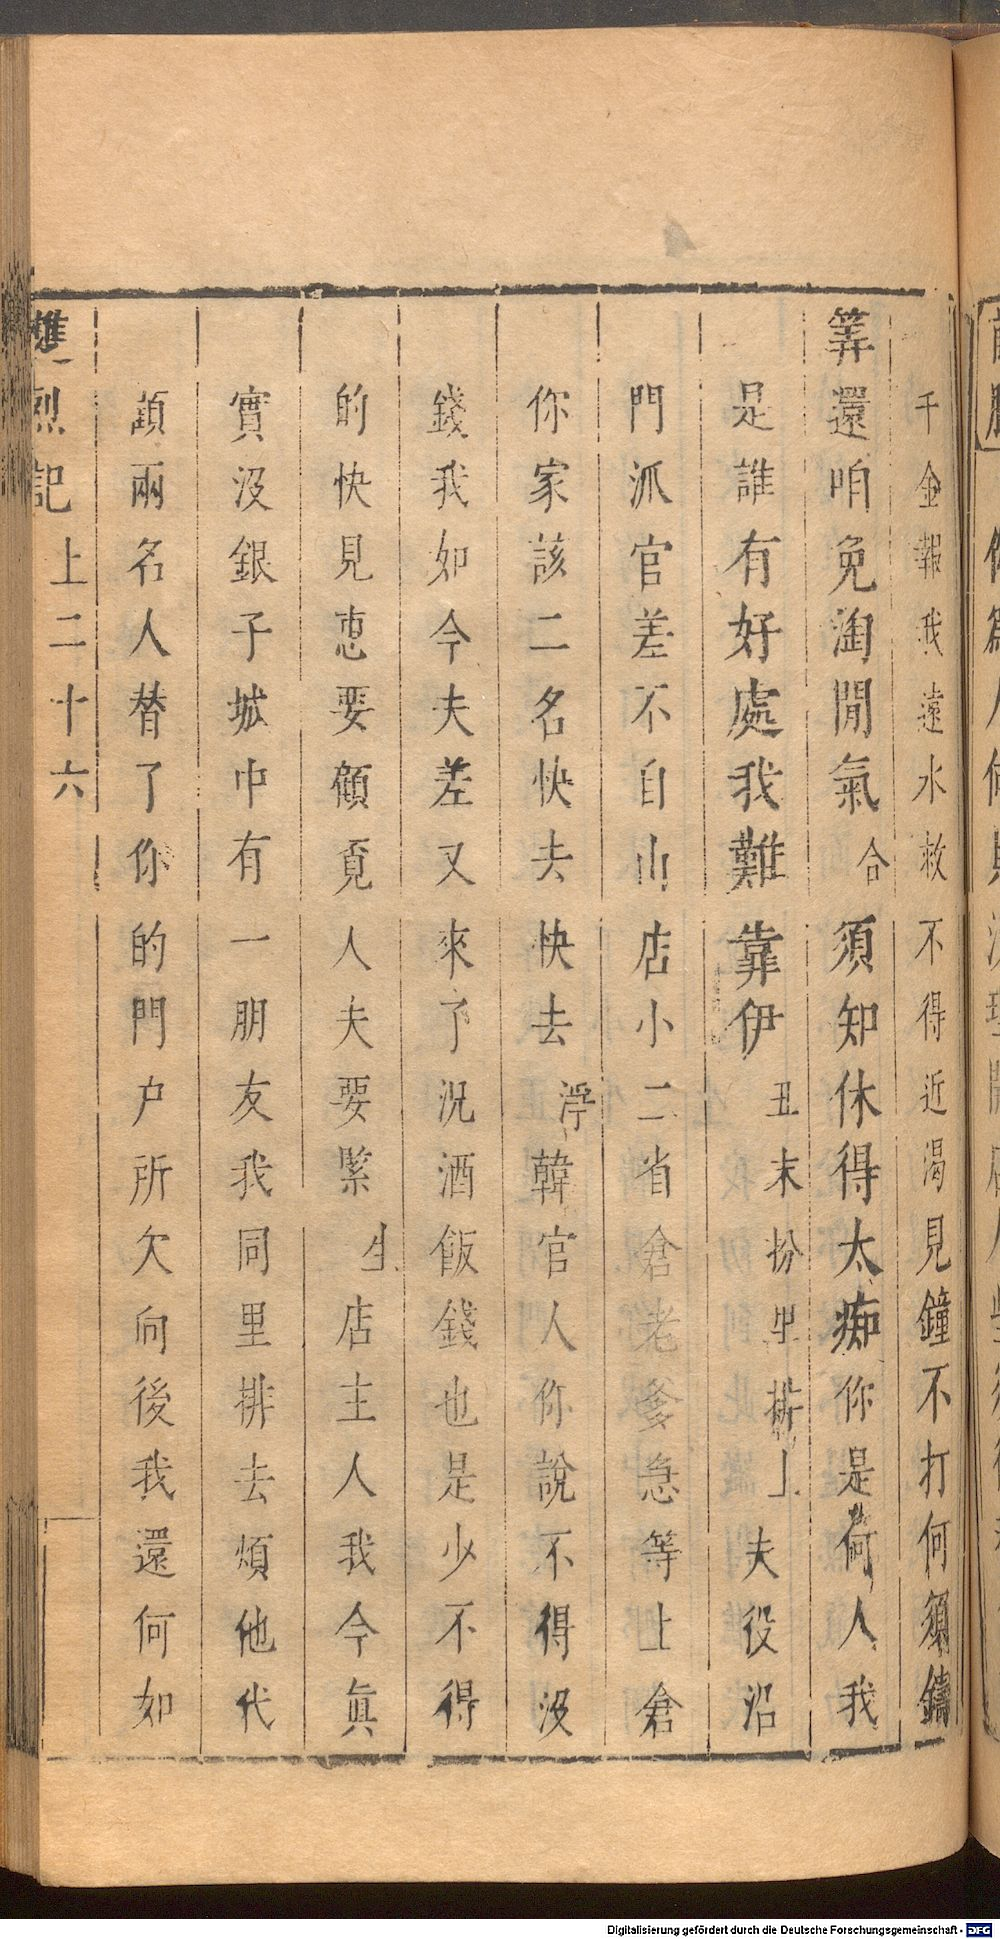 千金報我遠水救不得近渴見鐘不打何須鑄
筭還咱免淘閒氣合須知休得太痴你是何人我
是誰有好處我難靠伊丑末扮甲排上夫役沿
門派官差不自由店小二省倉老爹急等上倉
你家該二名快去快去淨韓官人你說不得沒
錢我如今夫差又來了況酒飯錢也是少不得
的快見惠要顧覓人夫要緊生店主人我今眞
實沒銀子城中有一朋友我同里排去煩他代
顧兩名人替了你的門户所欠向後我還何如
雙烈記 上二十六
Digitalisierung gefördert durch die Deutsche Forschungsgemeinschaft - DFG